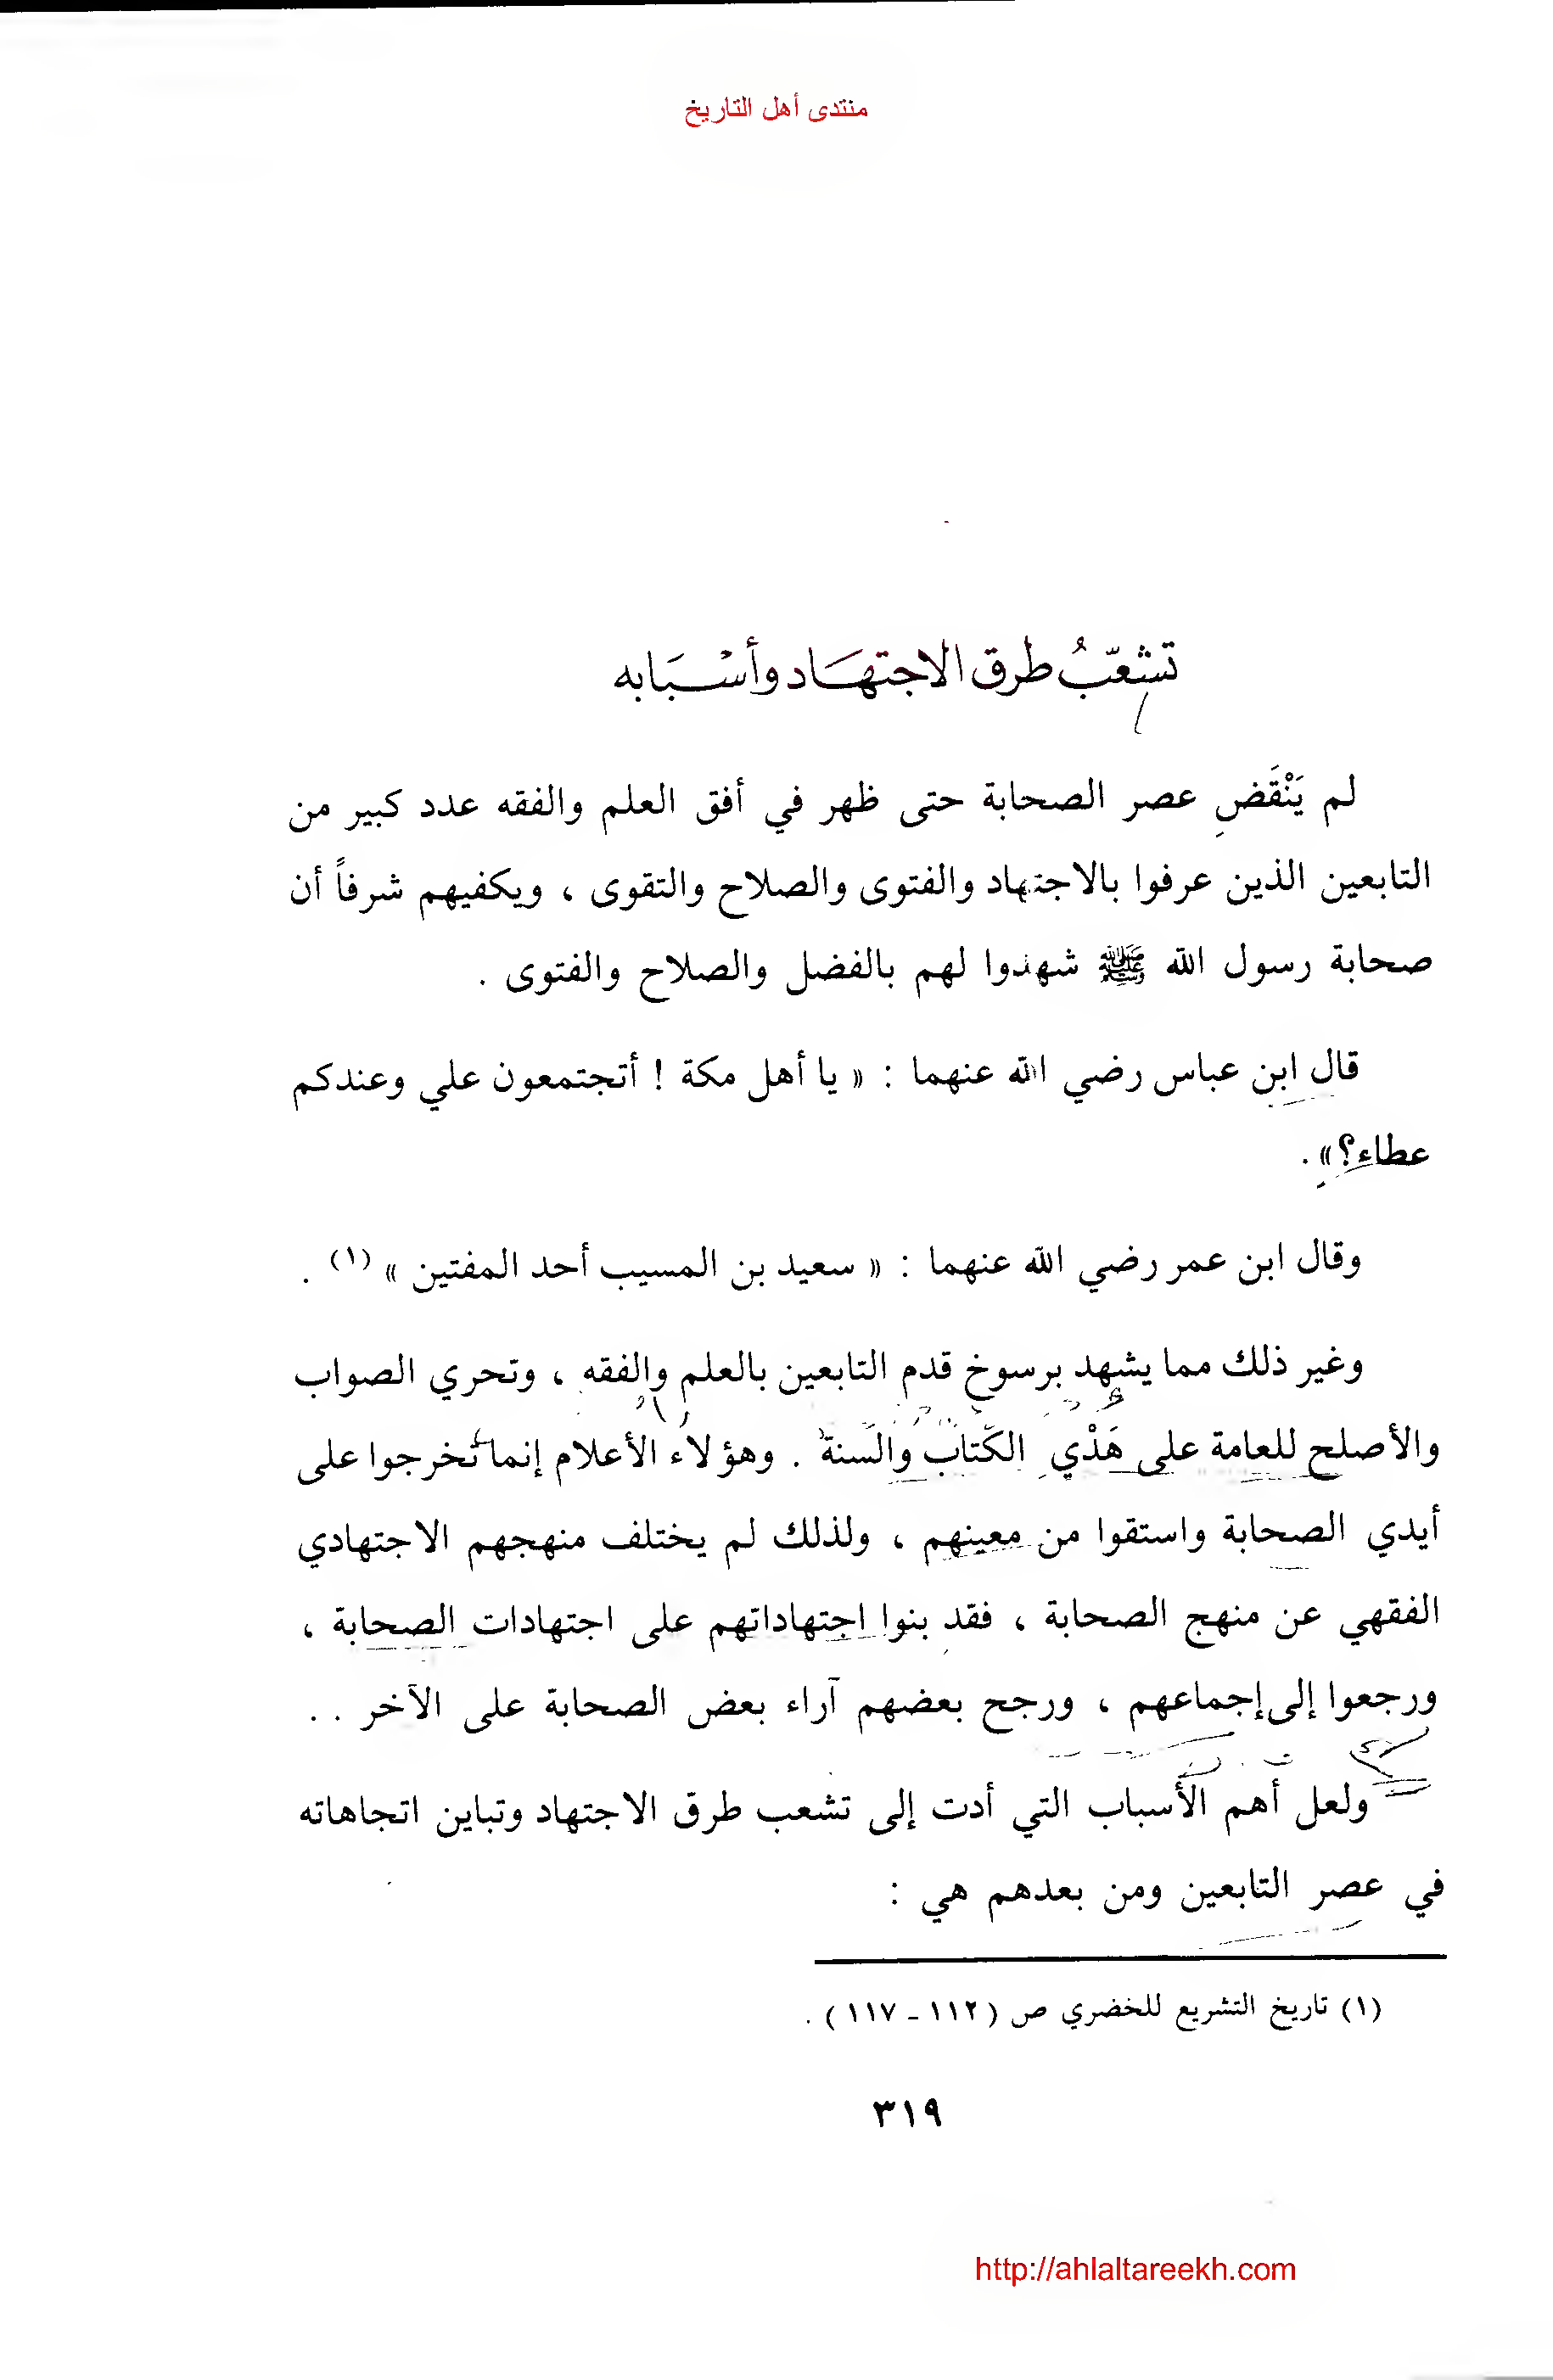 منتدى أهل التاريخ
تشعّبُ طرق الاجتهاد وأسبابه
لم يَنْقَضِ عصر الصحابة حتى ظهر في أفق العلم والفقه عدد كبير من
التابعين الذين عرفوا بالاجتهاد والفتوى والصلاح والتقوى ، ويكفيهم شرفاً أن
صحابة رسول الله ﷺ شهدوا لهم بالفضل والصلاح والفتوى .
قال ابن عباس رضي الله عنهما : « يا أهل مكة ! أتجتمعون علي وعندكم
عطاء؟» .
وقال ابن عمر رضي الله عنهما : « سعيد بن المسيب أحد المفتين » (١) .
وغير ذلك مما يشهد برسوخ قدم التابعين بالعلم والفقه ، وتحري الصواب
والأصلح للعامة على هَدْي الكتاب والسنة . وهؤلاء الأعلام إنما تخرجوا على
أيدي الصحابة واستقوا من معينهم ، ولذلك لم يختلف منهجهم الاجتهادي
الفقهي عن منهج الصحابة ، فقد بنوا اجتهاداتهم على اجتهادات الصحابة ،
ورجعوا إلى إجماعهم ، ورجح بعضهم آراء بعض الصحابة على الآخر . .
ولعل أهم الأسباب التي أدت إلى تشعب طرق الاجتهاد وتباين اتجاهاته
في عصر التابعين ومن بعدهم هي :
(١) تاريخ التشريع للخضري ص (١١٢ - ١١٧) .
٣١٩
http://ahlaltareekh.com